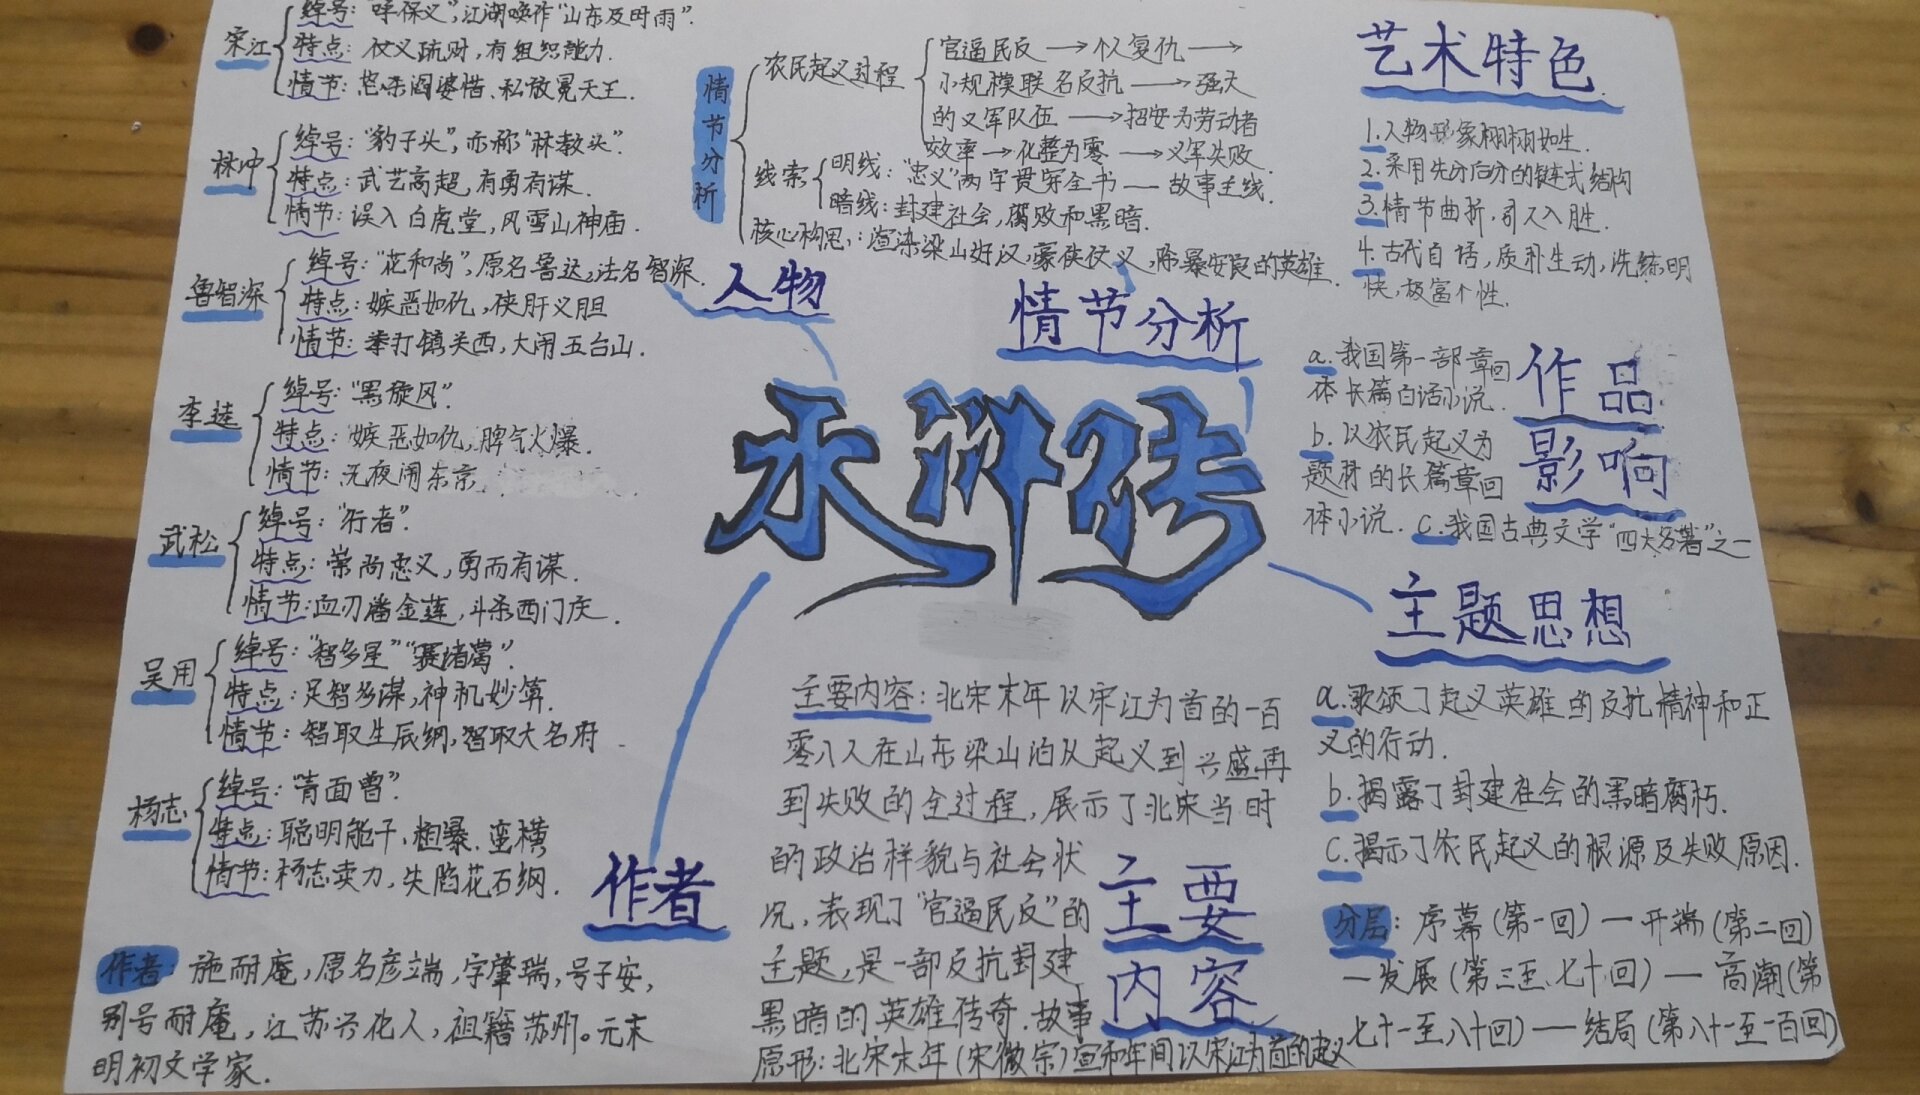 宋江
绰号："呼保义",江湖唤作"山东及时雨".
特点：仗义疏财,有组织能力.
情节：怒杀阎婆惜、私放晁天王.
林冲
绰号："豹子头",亦称"林教头".
特点：武艺高超,有勇有谋.
情节：误入白虎堂,风雪山神庙.
鲁智深
绰号："花和尚",原名鲁达,法名智深.
特点：嫉恶如仇,侠肝义胆
情节：拳打镇关西,大闹五台山.
李逵
绰号："黑旋风".
特点：嫉恶如仇,脾气火爆.
情节：元夜闹东京
武松
绰号："行者".
特点：崇尚忠义,勇而有谋.
情节：血刃潘金莲,斗杀西门庆.
吴用
绰号："智多星""赛诸葛".
特点：足智多谋,神机妙算.
情节：智取生辰纲,智取大名府.
杨志
绰号："青面兽".
特点：聪明能干,粗暴.蛮横
情节：杨志卖刀,失陷花石纲.
人物
情节分析
农民起义过程
官逼民反→个人复仇→
小规模联名反抗→强大
的义军队伍→招安为劳动者
效率→化整为零→义军失败.
线索
明线："忠义"两字贯穿全书—故事主线.
暗线：封建社会,腐败和黑暗.
核心构思：渲染梁山好汉,豪侠仗义,除暴安良的英雄.
情节分析
艺术特色
1.人物形象栩栩如生.
2.采用先分后合的链式结构
3.情节曲折,引人入胜.
4.古代白话,质朴生动,洗练明
快,极富个性.
作品
影响
a.我国第一部章回
体长篇白话小说.
b.以农民起义为
题材的长篇章回
体小说.c.我国古典文学"四大名著"之一
水浒传
主题思想
a.歌颂了起义英雄的反抗精神和正
义的行动.
b.揭露了封建社会的黑暗腐朽.
c.揭示了农民起义的根源及失败原因.
分层：序幕(第一回)—开端(第二回)
—发展(第三至七十回)—高潮(第
七十一至八十回)—结局(第八十一至一百回)
主要内容：北宋末年以宋江为首的一百
零八人在山东梁山泊从起义到兴盛再
到失败的全过程,展示了北宋当时
的政治样貌与社会状
况,表现了"官逼民反"的
主题,是一部反抗封建
黑暗的英雄传奇.故事
原形：北宋末年(宋徽宗)宣和年间以宋江为首的起义
主要
内容
作者
作者：施耐庵,原名彦端,字肇瑞,号子安,
别号耐庵,江苏兴化人,祖籍苏州。元末
明初文学家.